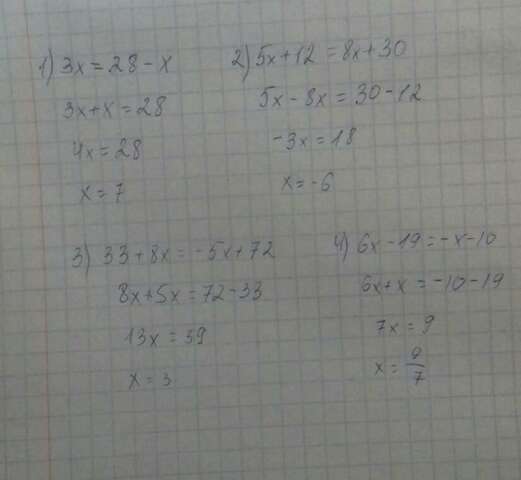 1) 3x = 28 - x
3x + x = 28
4x = 28
x = 7
2) 5x + 12 = 8x + 30
5x - 8x = 30 - 12
-3x = 18
x = -6
3) 33 + 8x = -5x + 72
8x + 5x = 72 - 33
13x = 39
x = 3
4) 6x - 19 = -x - 10
6x + x = -10 - 19
7x = 9
x = 9/7